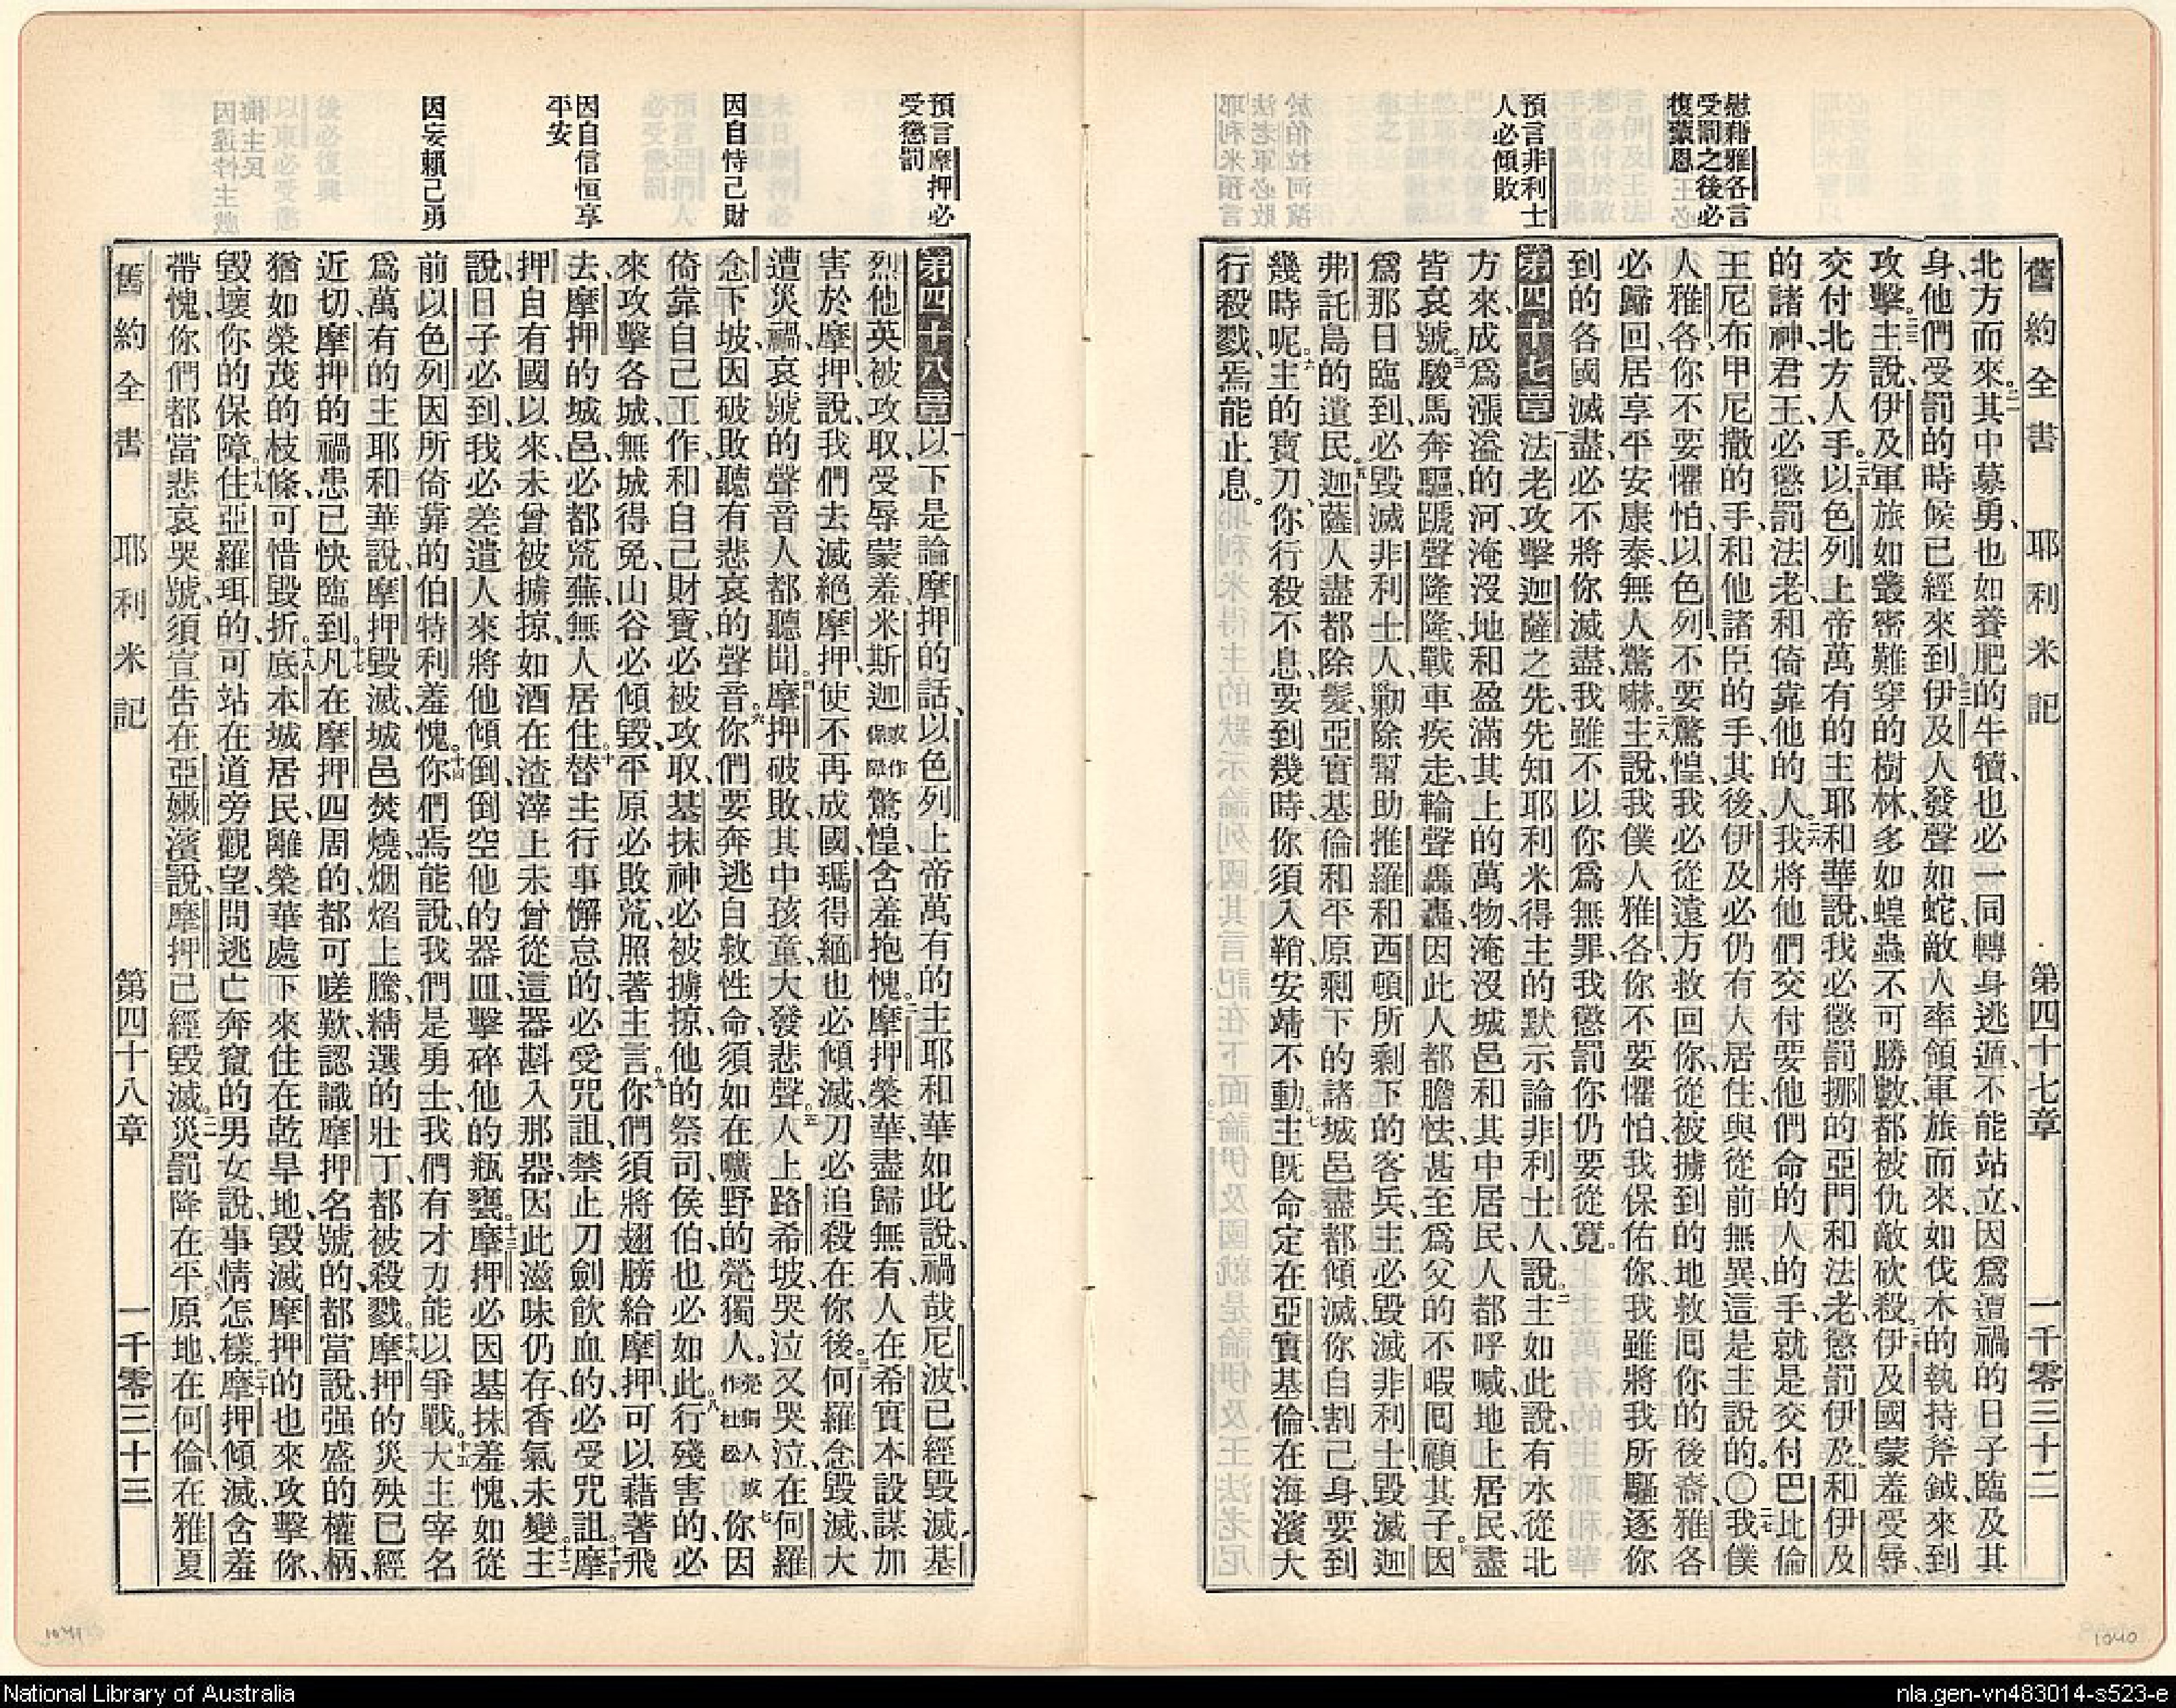 慰藉雅各言
受罰之後必
復蒙恩
預言非利士
人必傾敗
舊約全書 耶利米記 第四十七章 一千零三十二
北方而來。二一其中募勇、也如養肥的牛犢、也必一同轉身逃遁、不能站立、因爲遭禍的日子臨及其
身、他們受罰的時候已經來到。二二伊及人發聲如蛇、敵人率領軍旅而來、如伐木的執持斧鉞、來到
攻擊。二三主說、伊及軍旅如叢密難穿的樹林、多如蝗蟲不可勝數、都被仇敵砍殺。二四伊及國蒙羞受辱、
交付北方人手。二五以色列上帝萬有的主耶和華說、我必懲罰挪的亞們、和法老、懲罰伊及、和伊及
的諸神君王、必懲罰法老、和倚靠他的人。二六我將他們交付要他們命的人的手、就是交付巴比倫
王尼布甲尼撒的手、和他諸臣的手、其後伊及必仍有人居住、與從前無異、這是主說的。〇二七我僕
人雅各、你不要懼怕、以色列、不要驚惶、我必從遠方救回你、從被擄到的地救回你的後裔、雅各
必歸回、居享平安康泰、無人驚嚇。二八主說、我僕人雅各、你不要懼怕、我保佑你、我雖將我所驅逐你
到的各國滅盡、必不將你滅盡、我雖不以你爲無罪、我懲罰你、仍要從寬。
第四十七章 一法老攻擊迦薩之先、先知耶利米得主的默示、論非利士人說、二主如此說、有水從北
方來、成爲漲溢的河、淹沒地和盈滿其上的萬物、淹沒城邑和其中居民、人都呼喊、地上居民、盡
皆哀號。三駿馬奔驅、蹏聲隆隆、戰車疾走、輪聲轟轟、因此人都膽怯、甚至爲父的不暇囘顧其子。四因
爲那日臨到、必毀滅非利士人、勦除幫助推羅和西頓所剩下的客兵、主必毀滅非利士、毀滅迦
弗託島的遺民。五迦薩人盡都除髮、亞實基倫和平原剩下的諸城邑盡都傾滅、你自割己身、要到
幾時呢。六主的寶刀、你行殺不息、要到幾時、你須入鞘、安靖不動。七主旣命定在亞實基倫、在海濱大
行殺戮、焉能止息。
預言摩押必
受懲罰
因自恃己財
因自信恒享
平安
因妄賴己勇
第四十八章 一以下是論摩押的話、以色列上帝萬有的主耶和華如此說、禍哉尼波、已經毀滅、基
烈他英被攻取、受辱蒙羞、米斯迦或作保障驚惶、含羞抱愧。二摩押榮華、盡歸無有、人在希實本設謀加
害於摩押、說、我們去滅絕摩押、使不再成國、瑪得緬也必傾滅、刀必追殺在你後。三何羅念毀滅、大
遭災禍、哀號的聲音人都聽聞。四摩押破敗、其中孩童大發悲聲。五人上路希坡、哭泣又哭泣、在何羅
念下坡、因破敗聽有悲哀的聲音。六你們要奔逃自救性命、須如在曠野的煢獨人。煢獨人或作杜松七你因
倚靠自己工作、和自己財寶、必被攻取、基抹神必被擄掠、他的祭司侯伯也必如此。八行殘害的、必
來攻擊各城、無城得免、山谷必傾毀、平原必敗荒、照著主言。九你們須將翅膀給摩押、可以藉著飛
去、摩押的城邑必都荒蕪、無人居住。十替主行事懈怠的、必受咒詛、禁止刀劍飲血的、必受咒詛。十一摩
押自有國以來、未曾被擄掠、如酒在渣滓上、未曾從這器斟入那器、因此滋味仍存、香氣未變。十二主
說、日子必到、我必差遣人來將他傾倒、倒空他的器皿、擊碎他的瓶甕。十三摩押必因基抹羞愧、如從
前以色列因所倚靠的伯特利羞愧。十四你們焉能說、我們是勇士、我們有才力、能以爭戰。十五大主宰名
爲萬有的主耶和華說、摩押毀滅、城邑焚燒、烟焰上騰、精選的壯丁、都被殺戮。十六摩押的災殃已經
近切、摩押的禍患已快臨到。十七凡在摩押四周的、都可嗟歎、認識摩押名號的、都當說、强盛的權柄、
猶如榮茂的枝條、可惜毀折。十八底本城居民、離榮華處下來、住在乾旱地、毀滅摩押的也來攻擊你、
毀壞你的保障。十九住亞羅珥的、可站在道旁觀望、問逃亡奔竄的男女說、事情怎樣。二十摩押傾滅、含羞
帶愧、你們都當悲哀哭號、須宣告在亞嫩濱說、摩押已經毀滅。二一災罰降在平原地、在何倫、在雅夏
舊約全書 耶利米記 第四十八章 一千零三十三
1041
1040
National Library of Australia
nla.gen-vn483014-s523-e